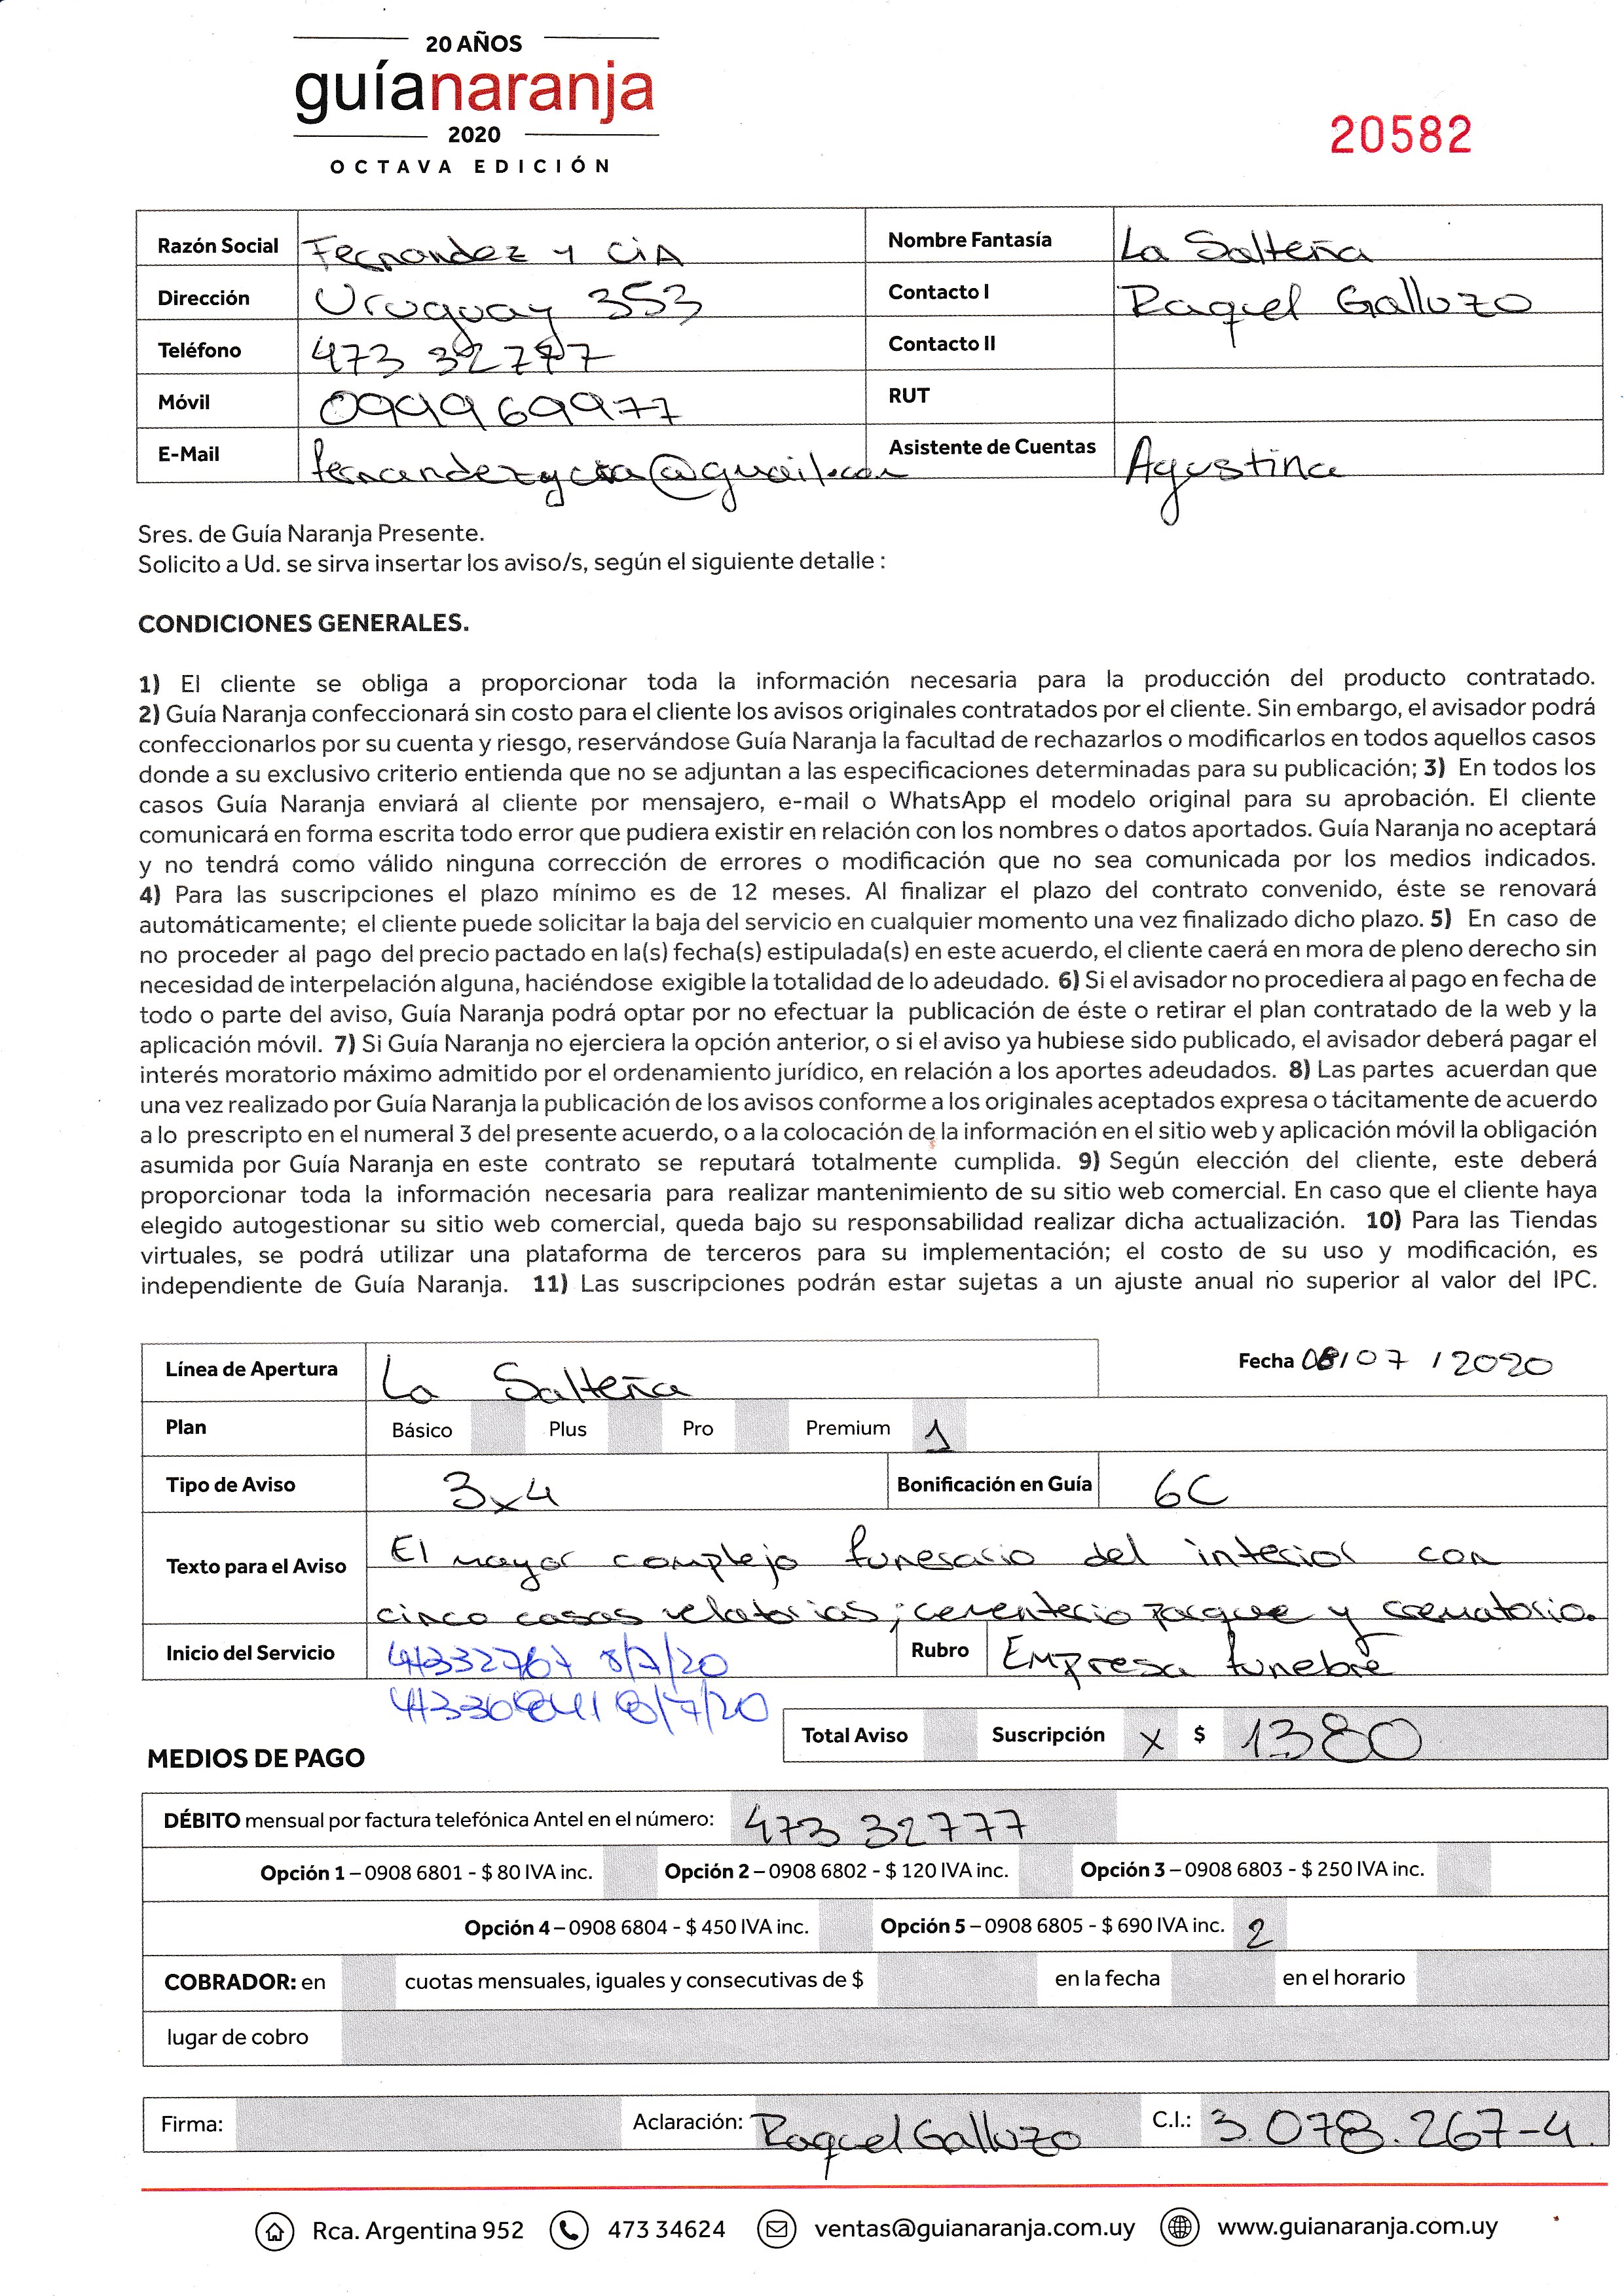 20 AÑOS
guíanaranja
2020
OCTAVA EDICIÓN
20582
Razón Social Fernandez y CiA Nombre Fantasía La Salteña
Dirección Uruguay 353 Contacto I Raquel Galluzo
Teléfono 473 32777 Contacto II
Móvil 099969977 RUT
E-Mail fernandezycia@gmail.com Asistente de Cuentas Agustina
Sres. de Guía Naranja Presente.
Solicito a Ud. se sirva insertar los aviso/s, según el siguiente detalle :
CONDICIONES GENERALES.
1) El cliente se obliga a proporcionar toda la información necesaria para la producción del producto contratado.
2) Guía Naranja confeccionará sin costo para el cliente los avisos originales contratados por el cliente. Sin embargo, el avisador podrá
confeccionarlos por su cuenta y riesgo, reservándose Guía Naranja la facultad de rechazarlos o modificarlos en todos aquellos casos
donde a su exclusivo criterio entienda que no se adjuntan a las especificaciones determinadas para su publicación; 3) En todos los
casos Guía Naranja enviará al cliente por mensajero, e-mail o WhatsApp el modelo original para su aprobación. El cliente
comunicará en forma escrita todo error que pudiera existir en relación con los nombres o datos aportados. Guía Naranja no aceptará
y no tendrá como válido ninguna corrección de errores o modificación que no sea comunicada por los medios indicados.
4) Para las suscripciones el plazo mínimo es de 12 meses. Al finalizar el plazo del contrato convenido, éste se renovará
automáticamente; el cliente puede solicitar la baja del servicio en cualquier momento una vez finalizado dicho plazo. 5) En caso de
no proceder al pago del precio pactado en la(s) fecha(s) estipulada(s) en este acuerdo, el cliente caerá en mora de pleno derecho sin
necesidad de interpelación alguna, haciéndose exigible la totalidad de lo adeudado. 6) Si el avisador no procediera al pago en fecha de
todo o parte del aviso, Guía Naranja podrá optar por no efectuar la publicación de éste o retirar el plan contratado de la web y la
aplicación móvil. 7) Si Guía Naranja no ejerciera la opción anterior, o si el aviso ya hubiese sido publicado, el avisador deberá pagar el
interés moratorio máximo admitido por el ordenamiento jurídico, en relación a los aportes adeudados. 8) Las partes acuerdan que
una vez realizado por Guía Naranja la publicación de los avisos conforme a los originales aceptados expresa o tácitamente de acuerdo
a lo prescripto en el numeral 3 del presente acuerdo, o a la colocación de la información en el sitio web y aplicación móvil la obligación
asumida por Guía Naranja en este contrato se reputará totalmente cumplida. 9) Según elección del cliente, este deberá
proporcionar toda la información necesaria para realizar mantenimiento de su sitio web comercial. En caso que el cliente haya
elegido autogestionar su sitio web comercial, queda bajo su responsabilidad realizar dicha actualización. 10) Para las Tiendas
virtuales, se podrá utilizar una plataforma de terceros para su implementación; el costo de su uso y modificación, es
independiente de Guía Naranja. 11) Las suscripciones podrán estar sujetas a un ajuste anual no superior al valor del IPC.
Línea de Apertura La Salteña Fecha 08/07/2020
Plan Básico Plus Pro Premium 1
Tipo de Aviso 3x4 Bonificación en Guía 6C
Texto para el Aviso El mayor complejo funerario del interior con
cinco casas velatorias, cementerio parque y crematorio.
Inicio del Servicio 47332767 8/7/20 Rubro Empresa funebre
8/7/20
Total Aviso Suscripción X $ 1380
MEDIOS DE PAGO
DÉBITO mensual por factura telefónica Antel en el número: 473 32777
Opción 1 – 0908 6801 - $ 80 IVA inc. Opción 2 – 0908 6802 - $ 120 IVA inc. Opción 3 – 0908 6803 - $ 250 IVA inc.
Opción 4 – 0908 6804 - $ 450 IVA inc. Opción 5 – 0908 6805 - $ 690 IVA inc. 2
COBRADOR: en cuotas mensuales, iguales y consecutivas de $ en la fecha en el horario
lugar de cobro
Firma: Aclaración: Raquel Galluzo C.I.: 3.078.267-4.
Rca. Argentina 952 473 34624 ventas@guianaranja.com.uy www.guianaranja.com.uy